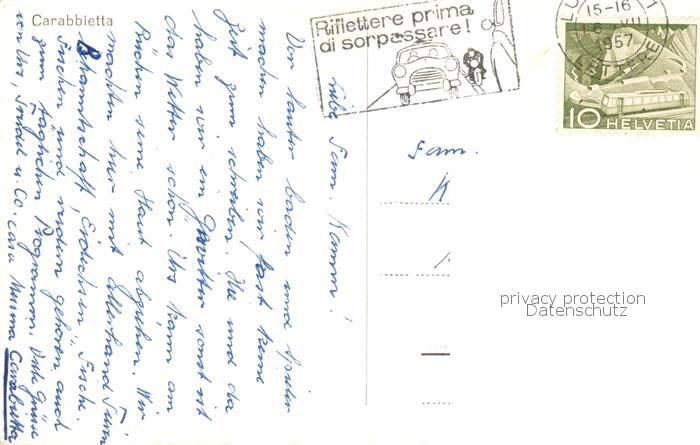 Carabbietta
Riflettere prima
di sorpassare!
15-16
VII
1957
LETTERE
10 HELVETIA
Liebe Fam. Kamm!
Vor lauter baden und spielen
machen haben wir fast keine
Zeit zum schreiben. Hie und da
haben wir ein Gewitter sonst ist
das Wetter schön. Urs kann am
Rücken seine Haut abziehen. Wir
machten hier mit allerhand Tieren
Bekanntschaft, Eidechsen, Fische.
Fischen und rudern gehören auch
zum täglichen Programm. Viele Grüsse
von Urs, & Co. Casa Carabbietta
Fam.
K
privacy protection
Datenschutz